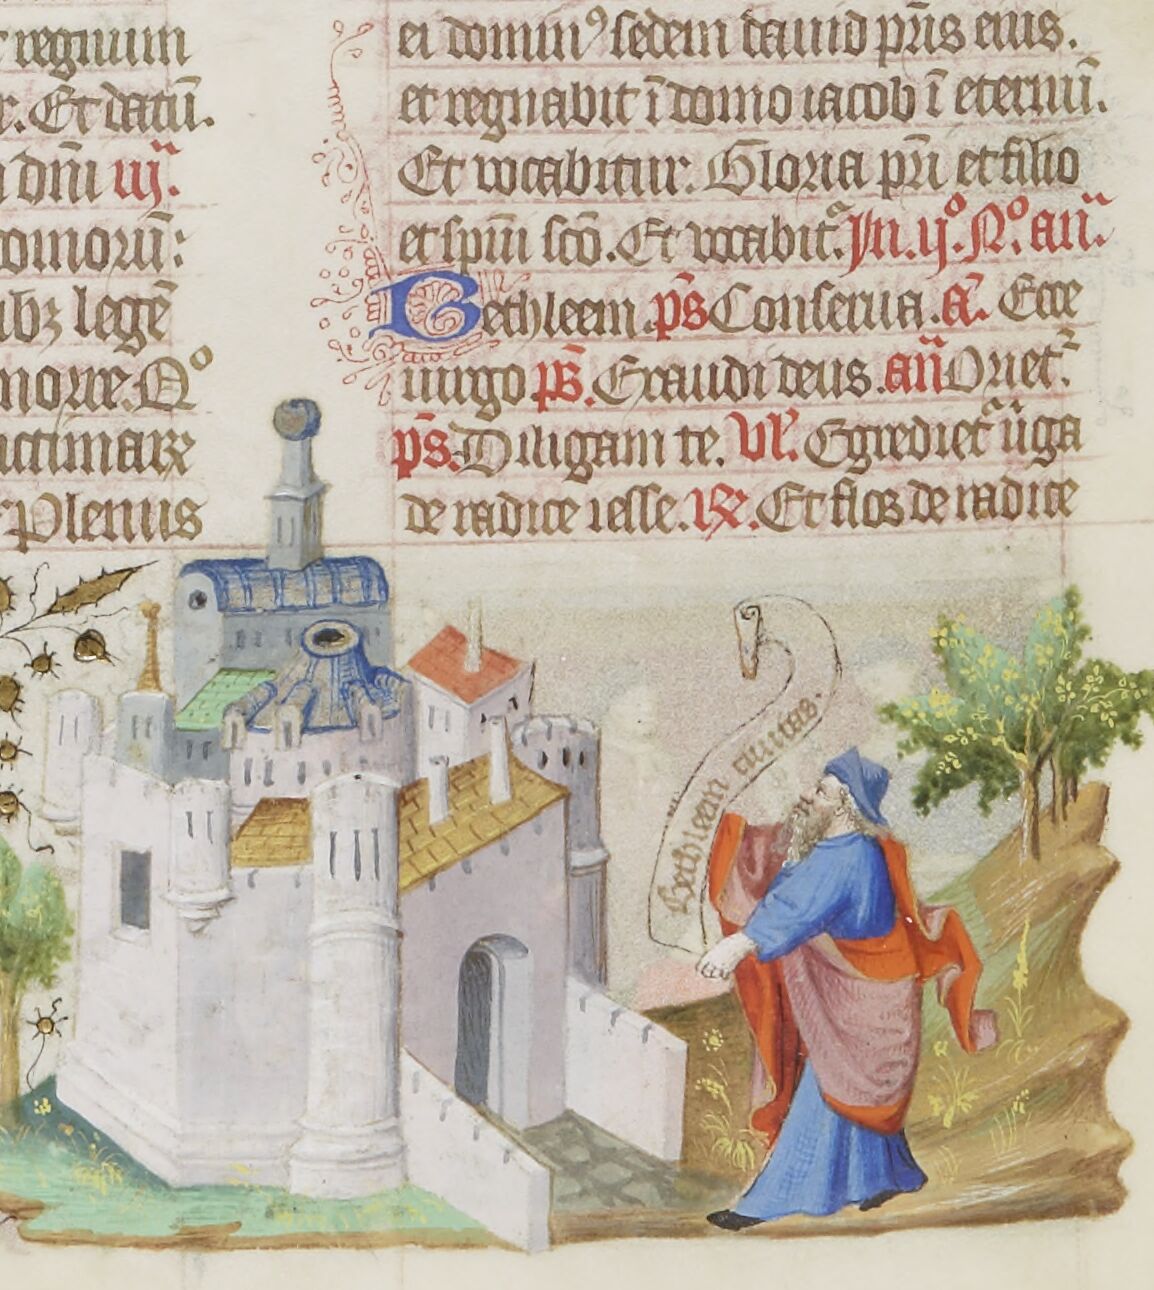 regnum
r. Et datū.
dn̄i iij.
omorū:
ibꝫ legē
morte. Qº
ictimarꝝ
Plenus
ei dominꝰ sedem dauid pr̄is eius.
et regnabit ī domo iacob ī eternū.
Et vocabitur. Gloria pr̄i et filio
et spūi scō. Et vocabit᷑. In. ij.º N.º an̄.
Bethleem. p̄s Conserua. a᷑. Ecce
uirgo p̄s. Exaudi deus. an̄ Oriet᷑.
p̄s. Diligam te. Vꝰ. Egrediet᷑ uͥga
de radice iesse. ℞. Et flos de radice
Bethleem ciuitas.